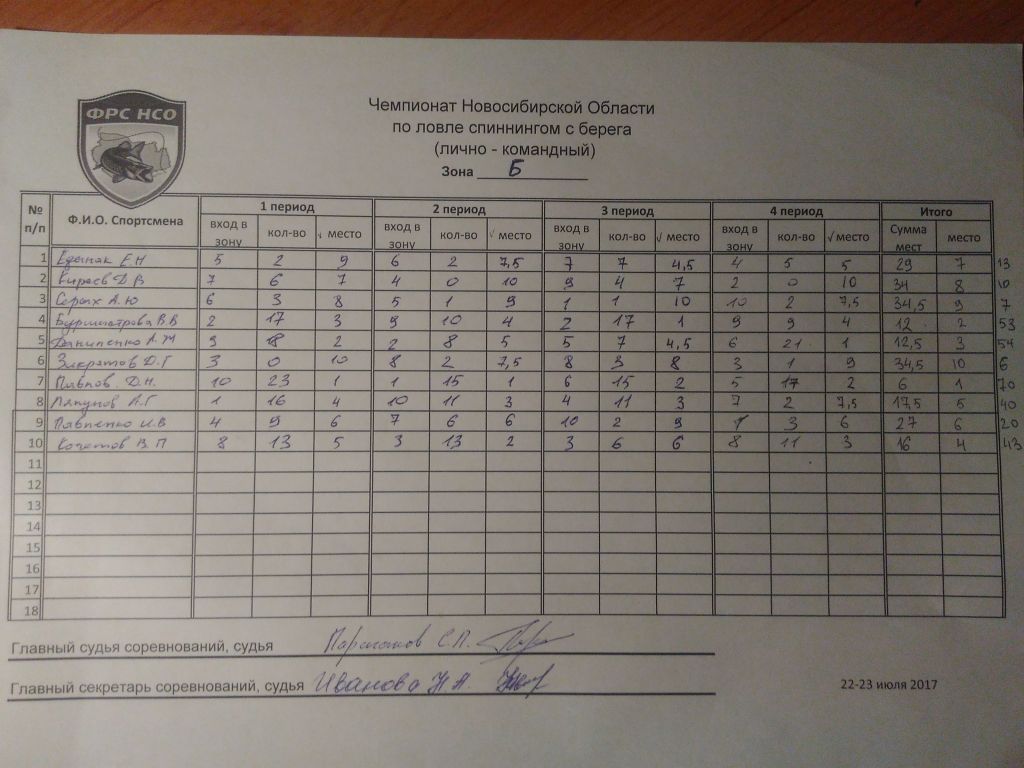 ФРС НСО
Чемпионат Новосибирской Области
по ловле спиннингом с берега
(лично - командный)
Зона Б
№ п/п Ф.И.О. Спортсмена 1 период 2 период 3 период 4 период Итого
вход в зону кол-во √ место вход в зону кол-во √ место вход в зону кол-во √ место вход в зону кол-во √ место Сумма мест место
1 Едынак Е Н 5 2 9 6 2 7,5 7 7 4,5 4 5 5 29 7 13
2 Д В 7 6 7 4 0 10 9 4 7 2 0 10 34 8 10
3 Серых А.Ю 6 3 8 5 1 9 1 1 10 10 2 7,5 34,5 9 7
4 В В 2 17 3 9 10 4 2 17 1 9 9 4 12 2 53
5 Данипенко А.М 9 18 2 2 8 5 5 7 4,5 6 21 1 12,5 3 54
6 Д.Г 3 0 10 8 2 7,5 8 3 8 3 1 9 34,5 10 6
7 Павлов Д.Н. 10 23 1 1 15 1 6 15 2 5 17 2 6 1 70
8 Ляпунов А.Г 1 16 4 10 11 3 4 11 3 7 2 7,5 17,5 5 40
9 Павленко И.В 4 9 6 7 6 6 10 2 9 1 3 6 27 6 20
10 Кочетов В.П 8 13 5 3 13 2 3 6 6 8 11 3 16 4 43
11
12
13
14
15
16
17
18
Главный судья соревнований, судья С.П.
Главный секретарь соревнований, судья Иванова Н.А.
22-23 июля 2017